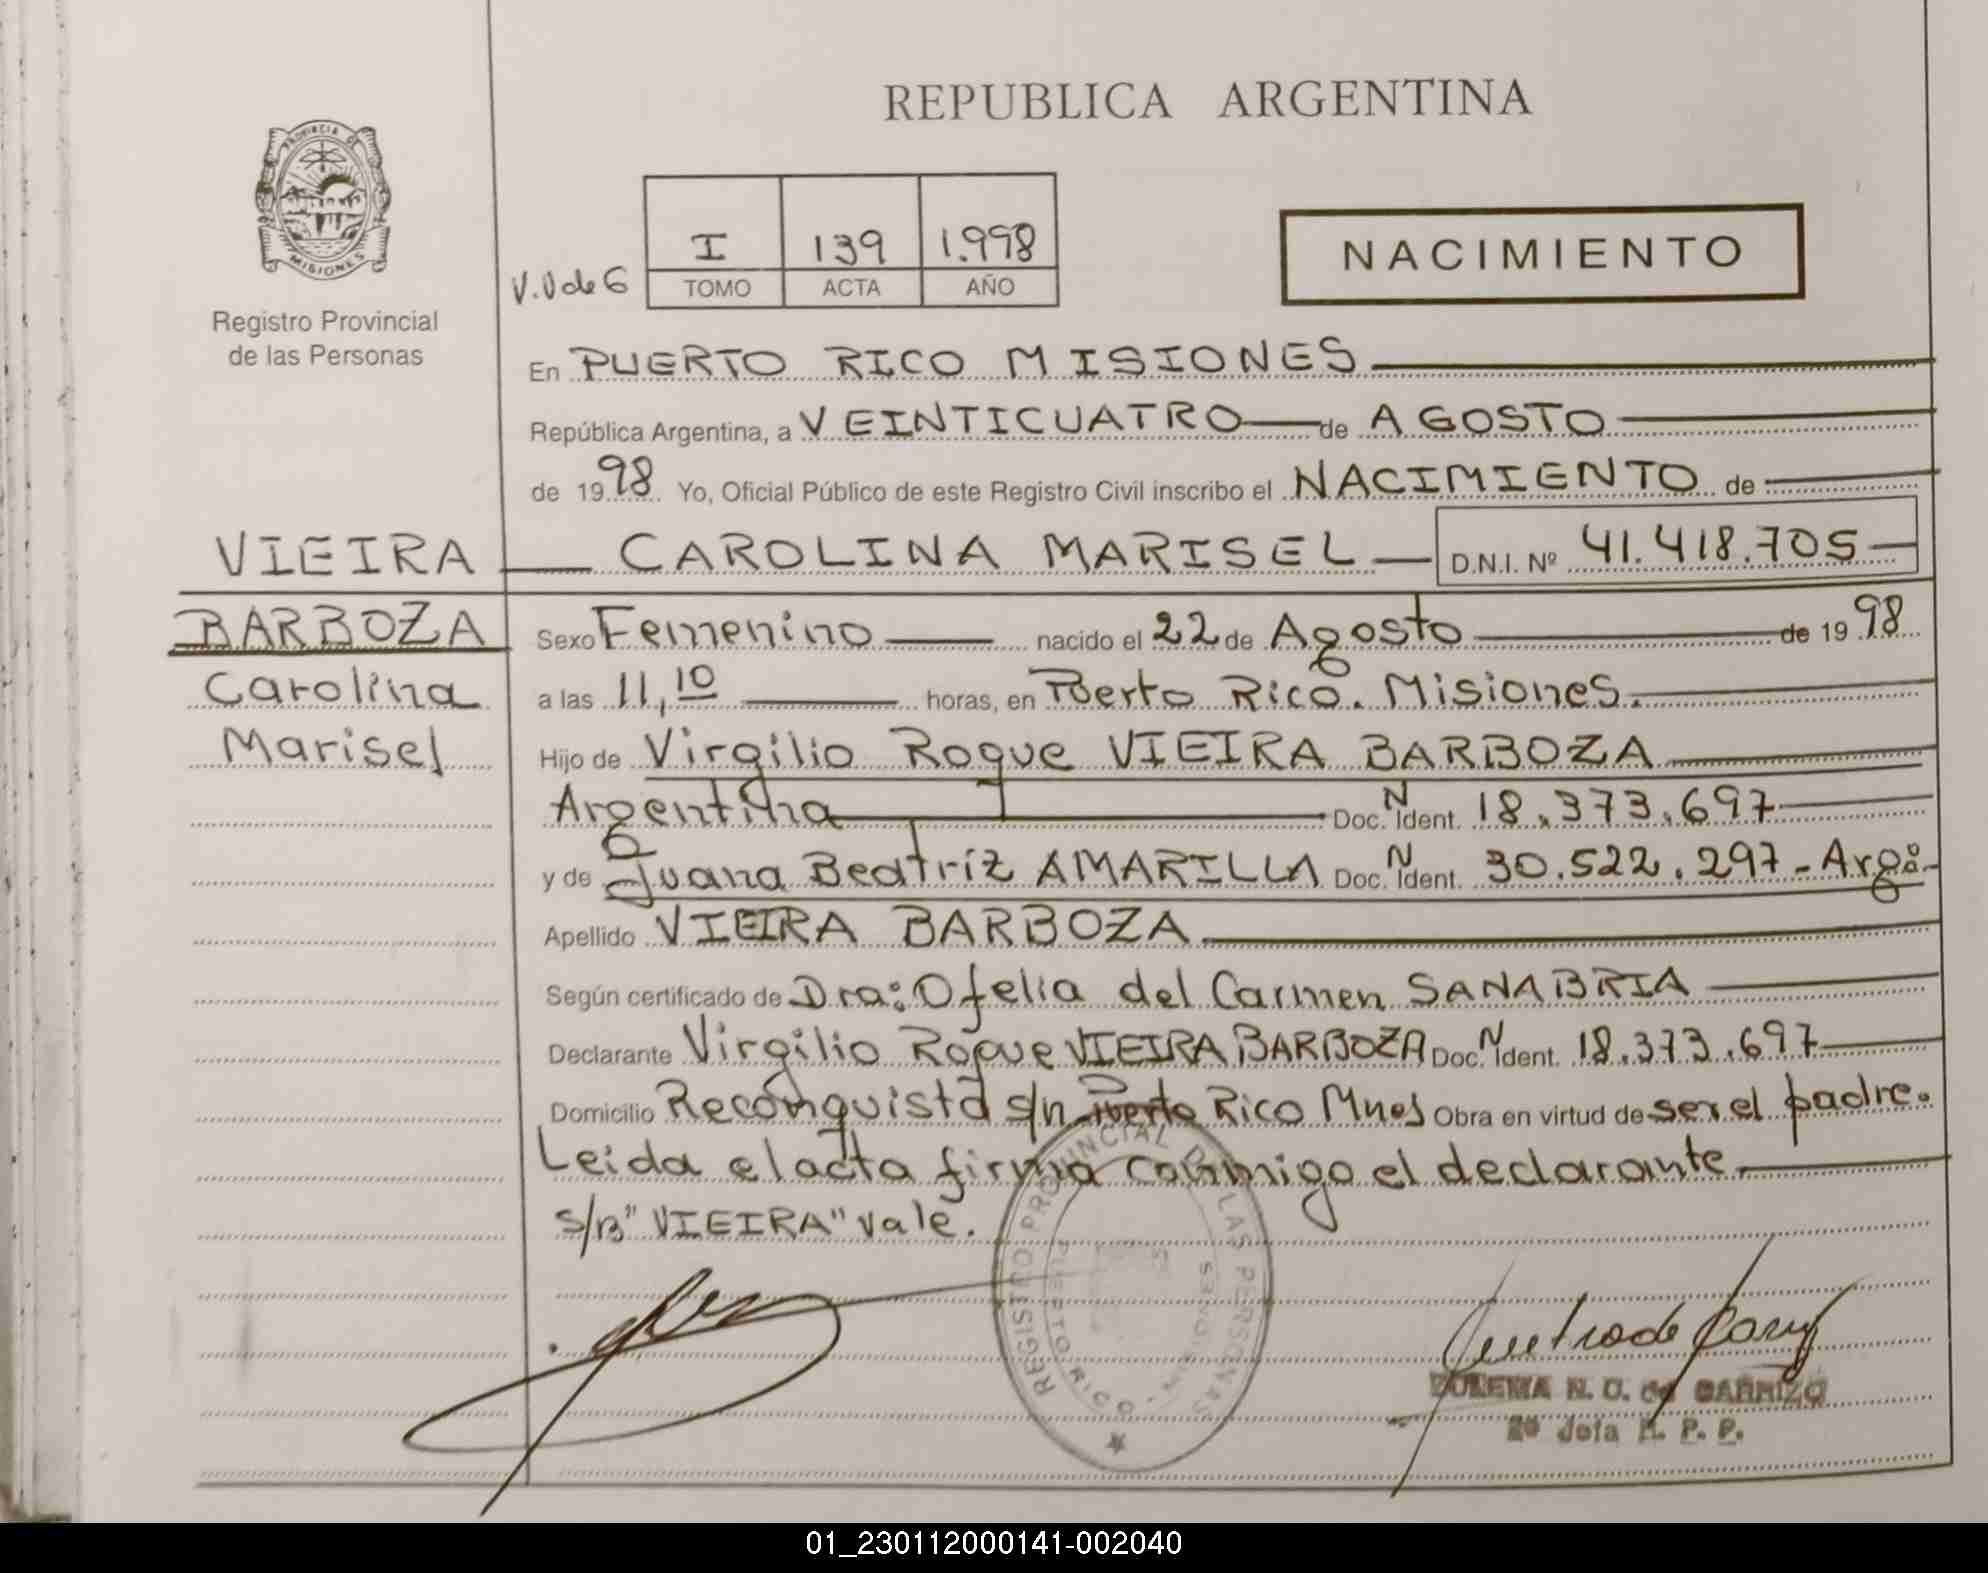 REPUBLICA ARGENTINA
PROVINCIA DE
MISIONES
Registro Provincial
de las Personas
V.V de G
I 139 1.998
TOMO ACTA AÑO
NACIMIENTO
En PUERTO RICO MISIONES
República Argentina, a VEINTICUATRO de AGOSTO
de 1998 Yo, Oficial Público de este Registro Civil inscribo el NACIMIENTO de
VIEIRA CAROLINA MARISEL D.N.I. Nº 41.418.705
BARBOZA
Carolina
Marisel
Sexo Femenino nacido el 22 de Agosto de 1998
a las 11,10 horas, en Puerto Rico. Misiones.
Hijo de Virgilio Roque VIEIRA BARBOZA
Argentina Doc. N Ident. 18.373.697
y de Juana Beatríz AMARILLA Doc. N Ident. 30.522.297 - Arg:
Apellido VIEIRA BARBOZA
Según certificado de Dra: Ofelia del Carmen SANABRIA
Declarante Virgilio Roque VIEIRA BARBOZA Doc. N Ident. 18.373.697
Domicilio Reconquista s/n Puerto Rico Mnes Obra en virtud de ser el padre.
Leida el acta firma conmigo el declarante
s/B "VIEIRA" vale.
REGISTRO PROVINCIAL DE LAS PERSONAS
PUERTO RICO - MISIONES
N. C. de CARRIZO
2º Jefa R. P. P.
01_230112000141-002040